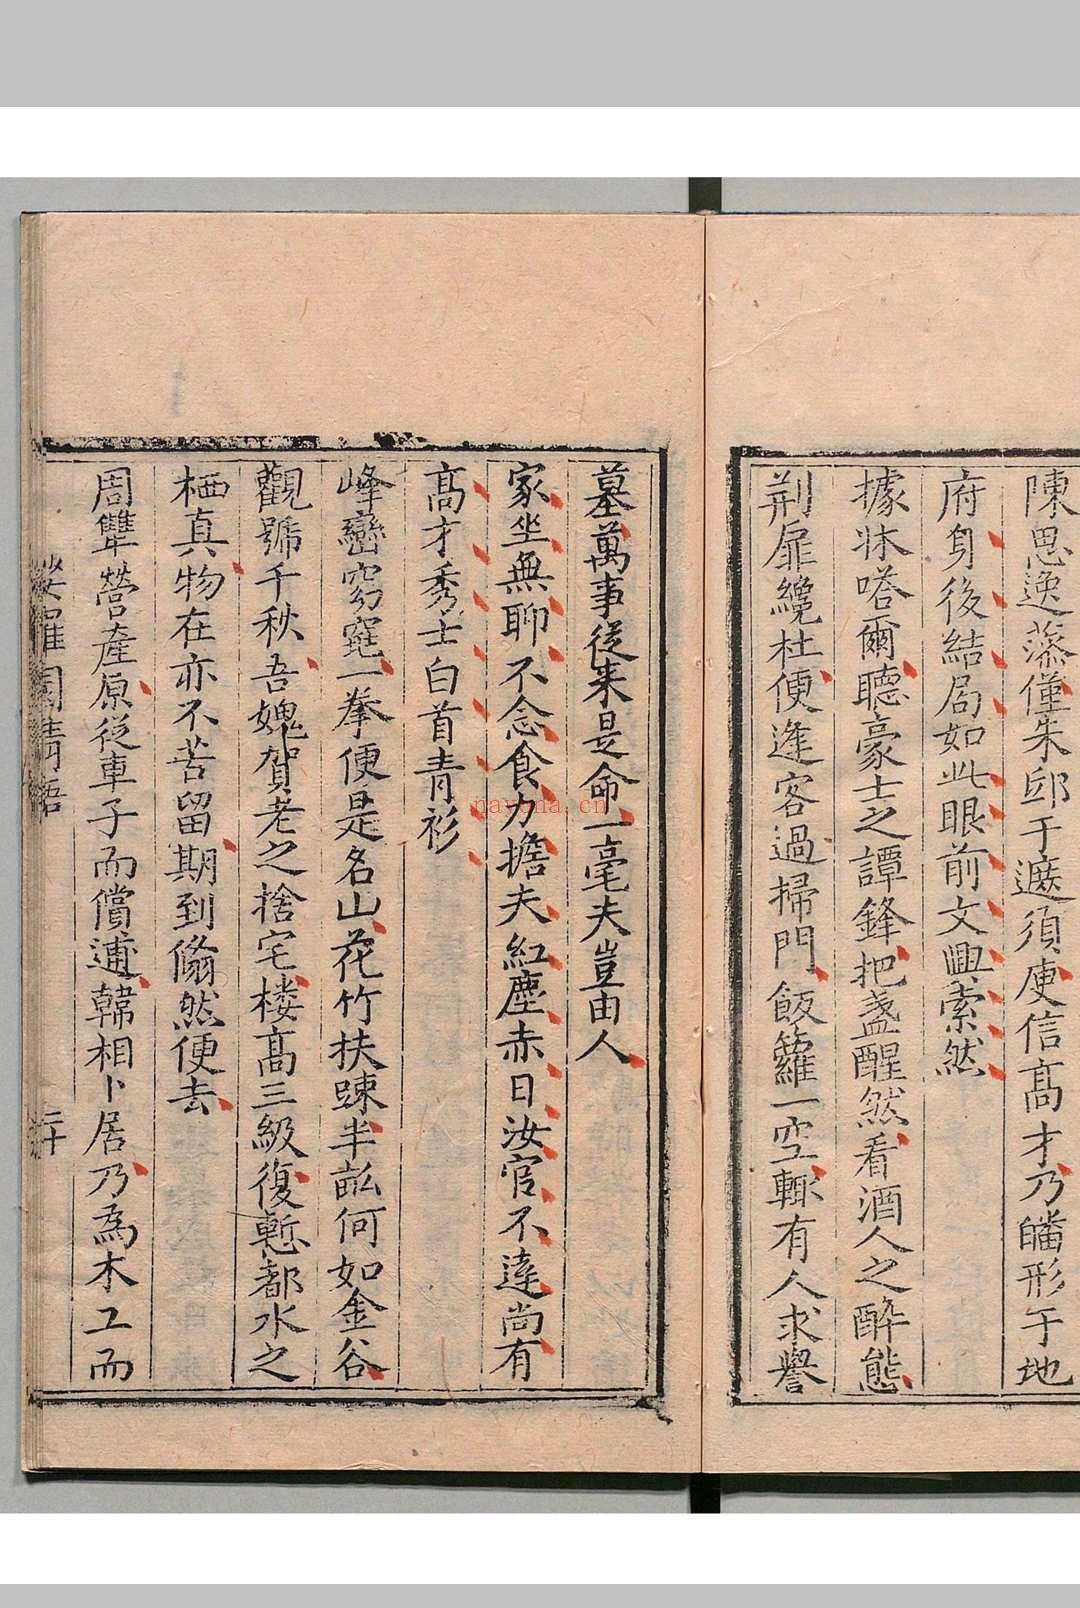 陳思逸藻僅朱邱于遮須庾信高才乃皤形于地
府身後結局如此眼前文興索然
據牀嗒爾聽豪士之譚鋒把盞醒然看酒人之醉態
荆扉纔杜便逢客過掃門飯籮一空輒有人求譽
墓萬事從来是命一毫夫豈由人
家坐無聊不念食力擔夫紅塵赤日汝官不達尚有
高才秀士白首青衫
峰巒窈窕一拳便是名山花竹扶踈半畝何如金谷
觀號千秋吾媿賀老之捨宅楼高三級復慙都水之
栖真物在亦不苦留期到翛然便去
周犨營產原從車子而償逋韓相卜居乃為木工而
娑羅園清語
二十
nayona.cn